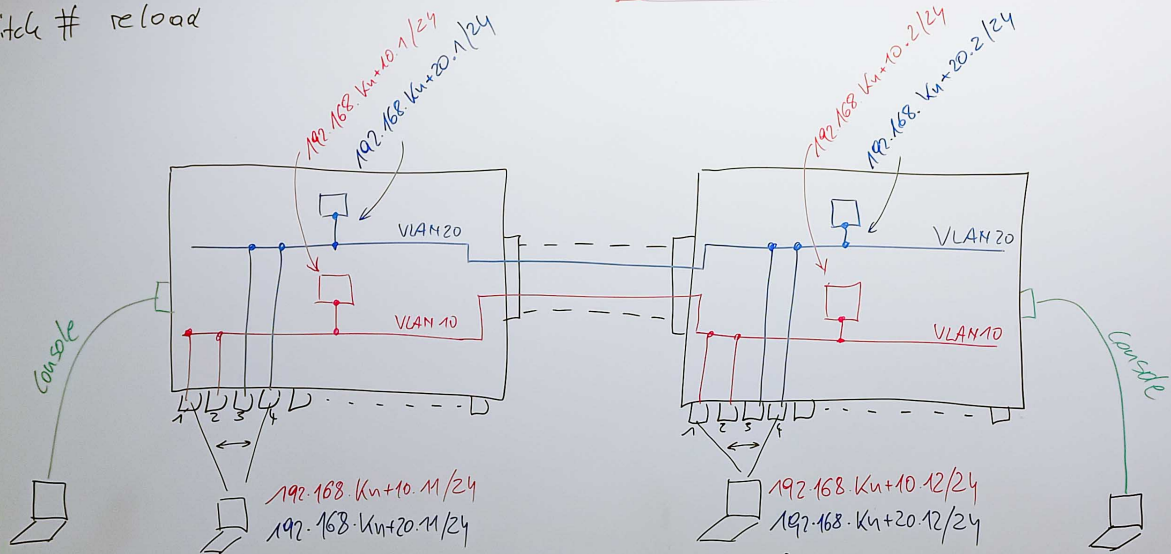 itch # reload
192.168.Kn+10.1/24
192.168.Kn+20.1/24
192.168 Kn+10.2/24
192.168.Kn+20.2/24
VLAN20
VLAN20
VLAN10
VLAN10
console
console
1 2 3 4
1 2 3 4
192.168.Kn+10.11/24
192.168.Kn+20.11/24
192.168.Kn+10.12/24
192.168.Kn+20.12/24